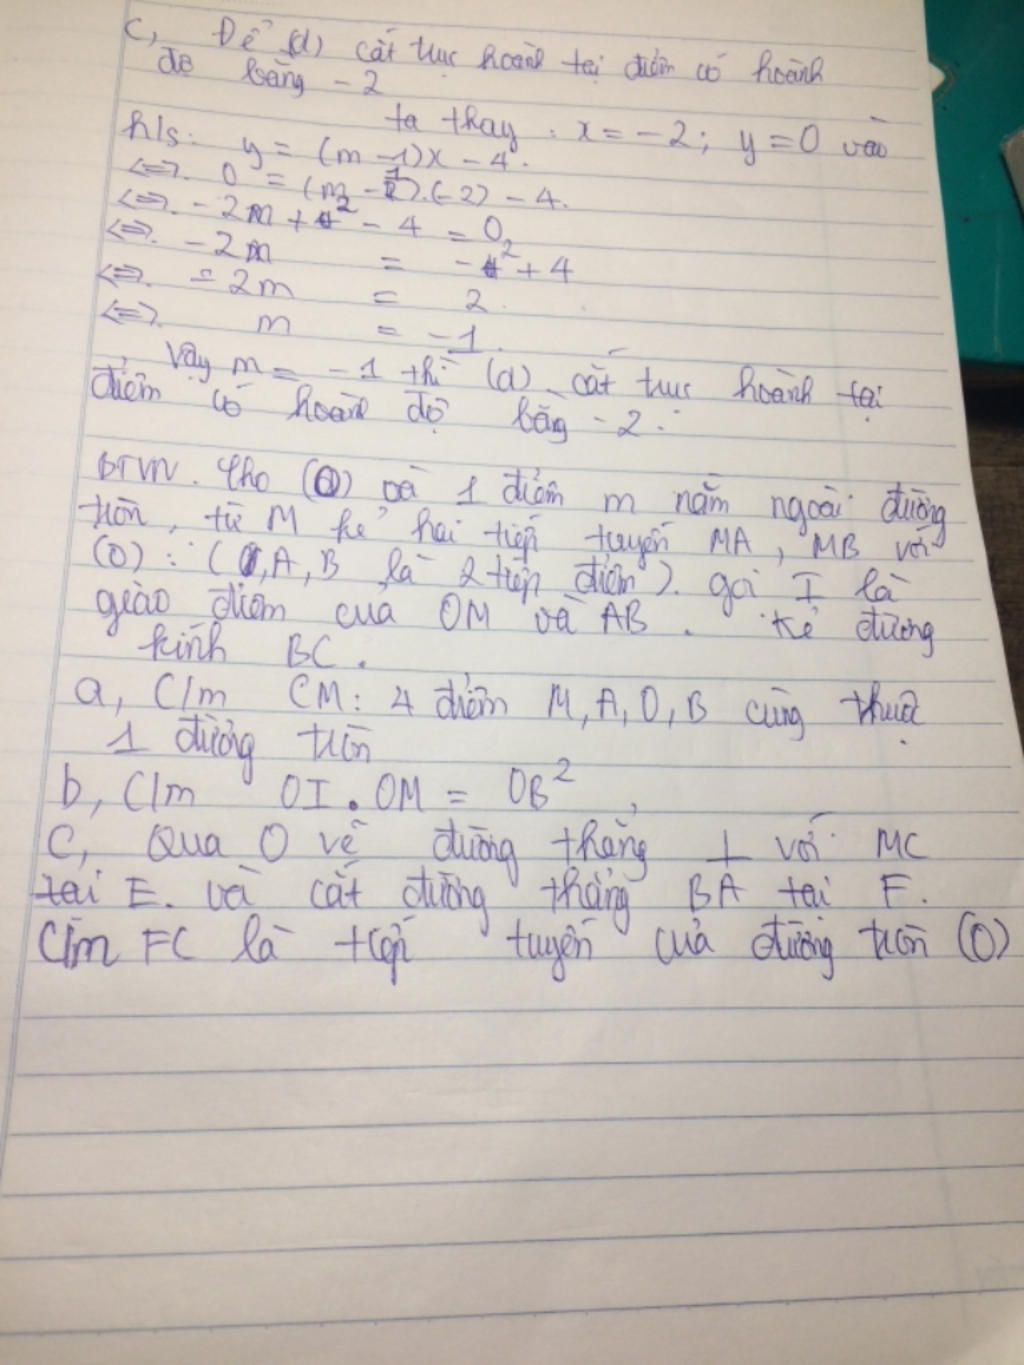 c, Để (d) cắt trục hoành tại điểm có hoành
độ bằng -2
ta thay : x = -2 ; y = 0 vào
h/s: y = (m - 1)x - 4.
<=>. 0 = (m - 1).(-2) - 4.
<=>. -2m + 2 - 4 = 0
<=>. -2m = -2 + 4
<=>. -2m = 2.
<=>. m = -1.
Vậy m = -1 thì (d) cắt trục hoành tại
điểm có hoành độ bằng -2.
BTVN. Cho (O) và 1 điểm m nằm ngoài đường
tròn, từ M kẻ hai tiếp tuyến MA, MB với
(O) : ( A, B là 2 tiếp điểm). gọi I là
giao điểm của OM và AB. Kẻ đường
kính BC.
a, C/m CM: 4 điểm M, A, O, B cùng thuộc
1 đường tròn
b, C/m OI . OM = OB²
c, Qua O vẽ đường thẳng ⊥ với MC
tại E. và cắt đường thẳng BA tại F.
C/m FC là tiếp tuyến của đường tròn (O)